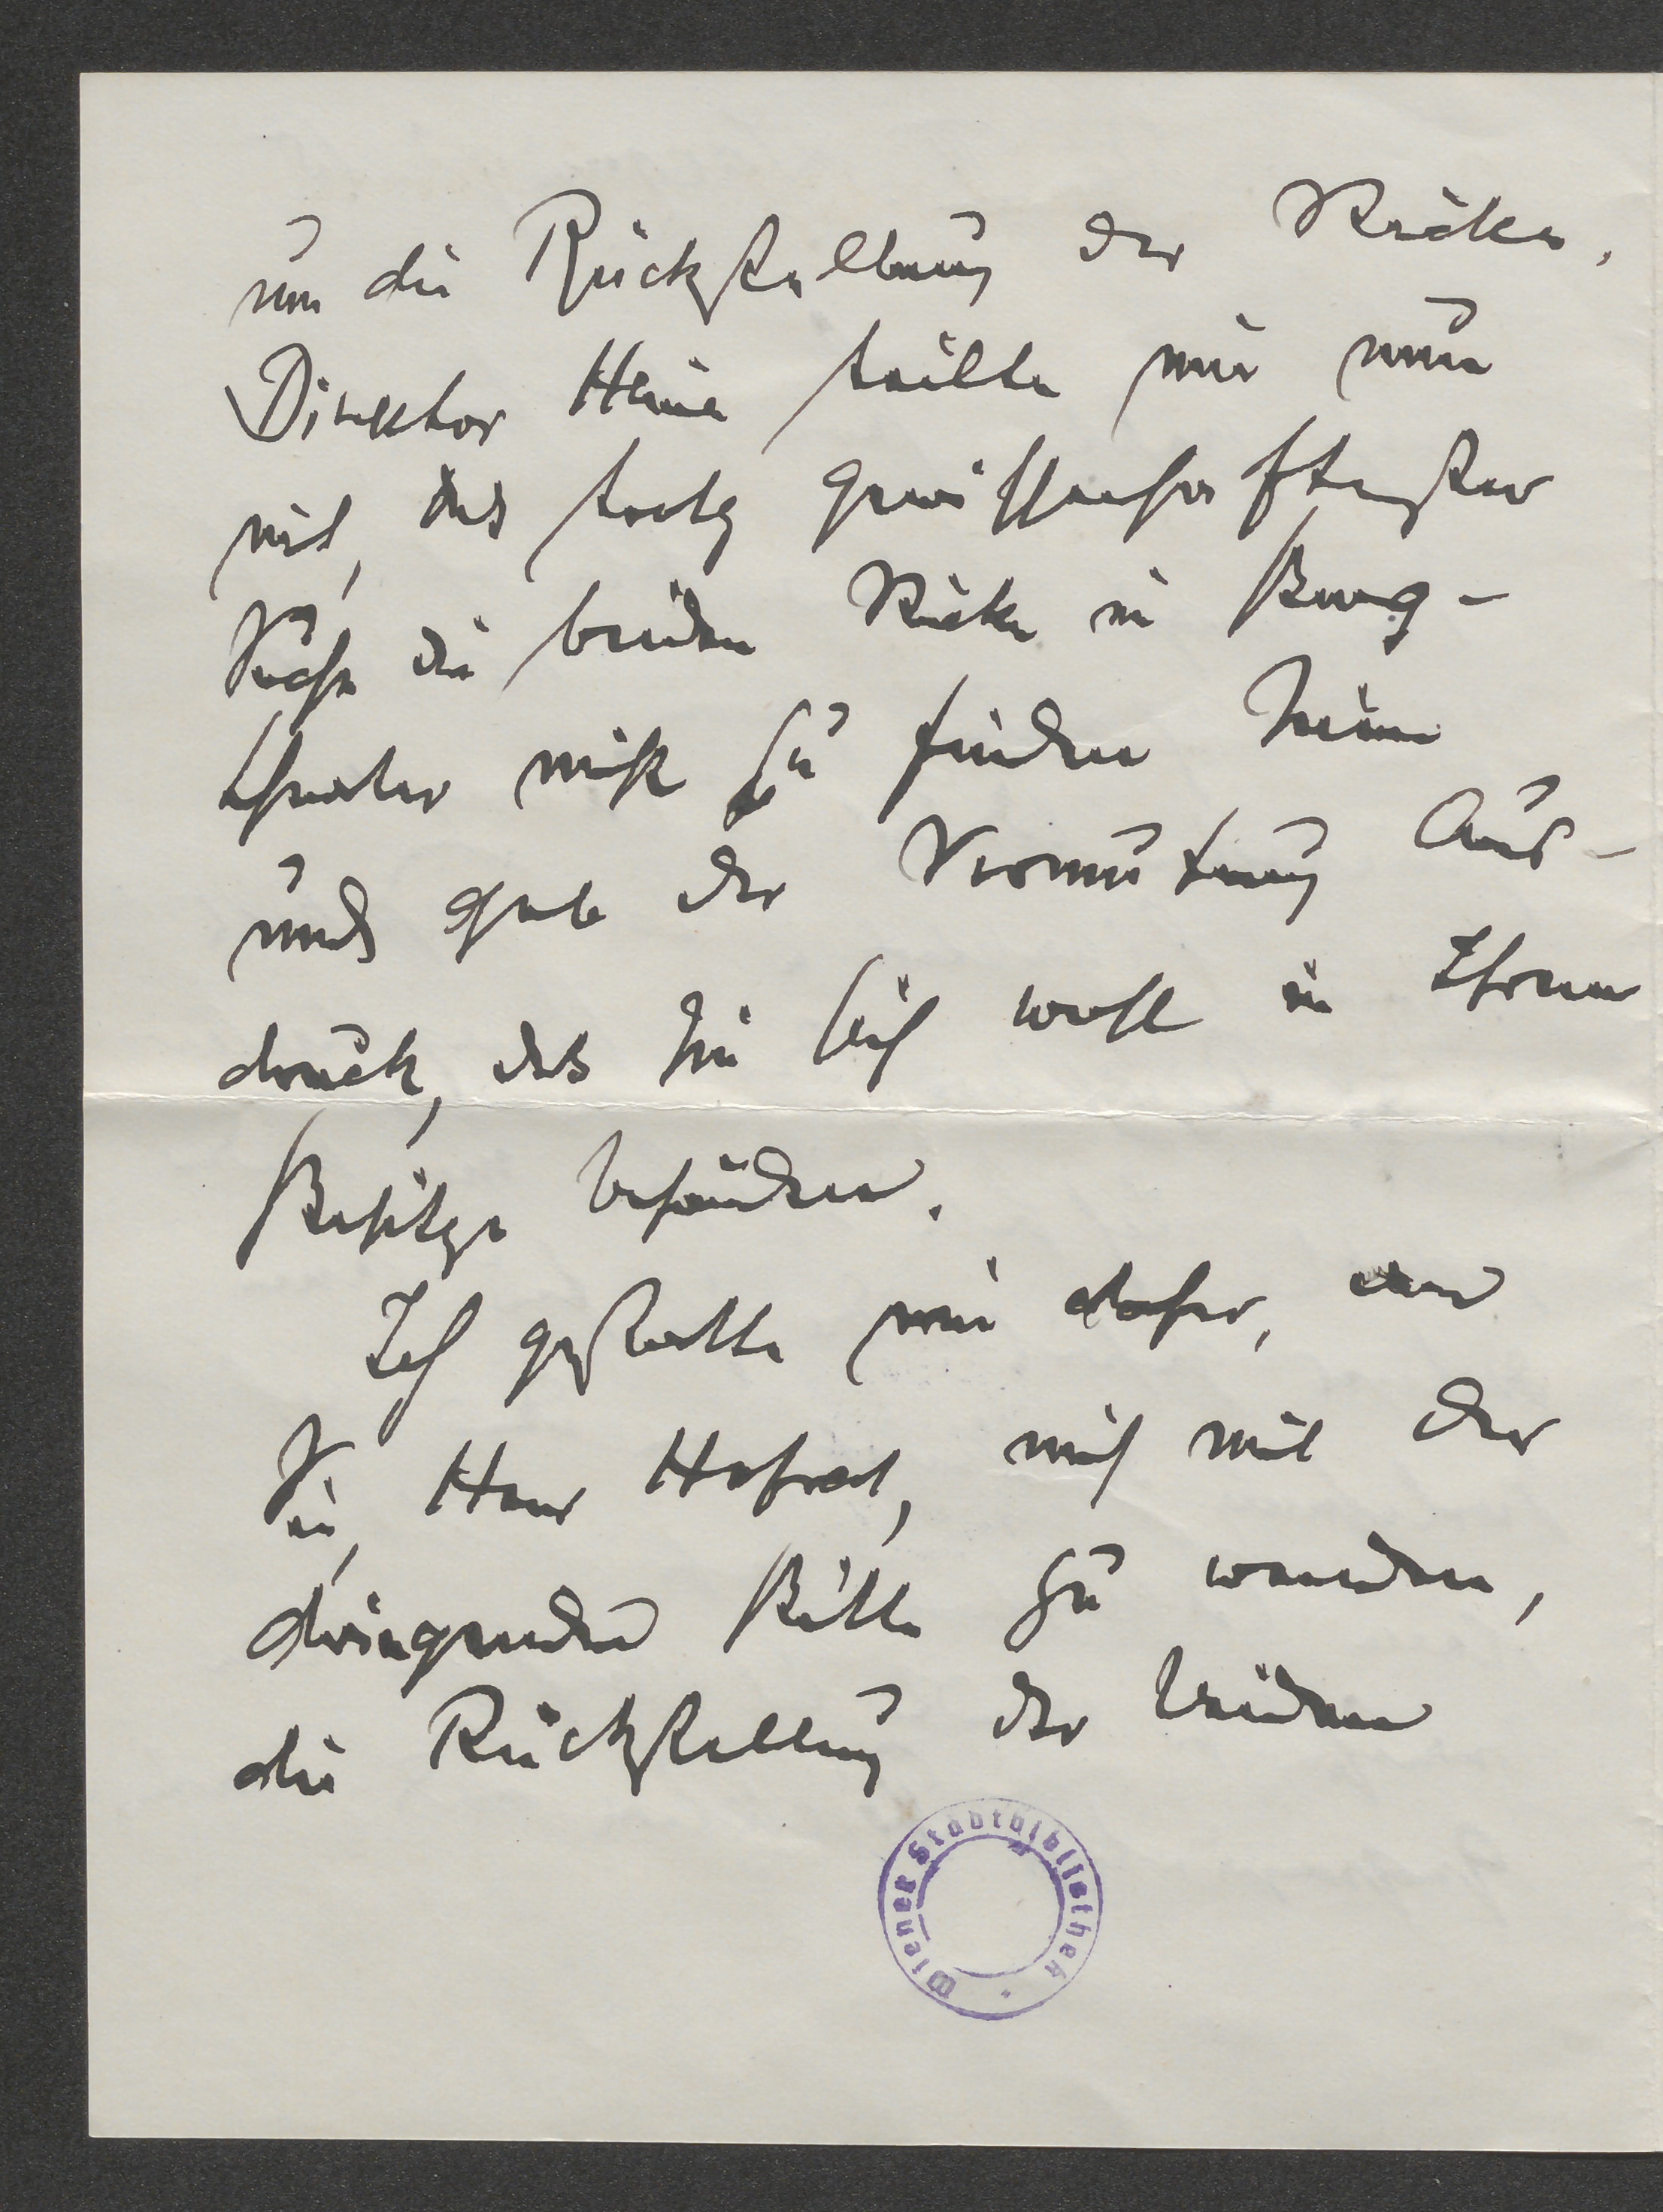 um die Rückstellung der Stücke.
Direktor Heine teilte mir nun
mit, dass trotz gewissenhaftester
Suche die beiden Stücke im Burg-
theater nicht zu finden seien
und gab der Vermutung Aus-
druck, dass sie sich wohl in Ihrem
Besitze befänden.
Ich gestatte mir daher, an
Sie, Herr Hofrat, mich mit der
dringenden Bitte zu wenden,
die Rückstellung der beiden
Wiener Stadtbibliothek